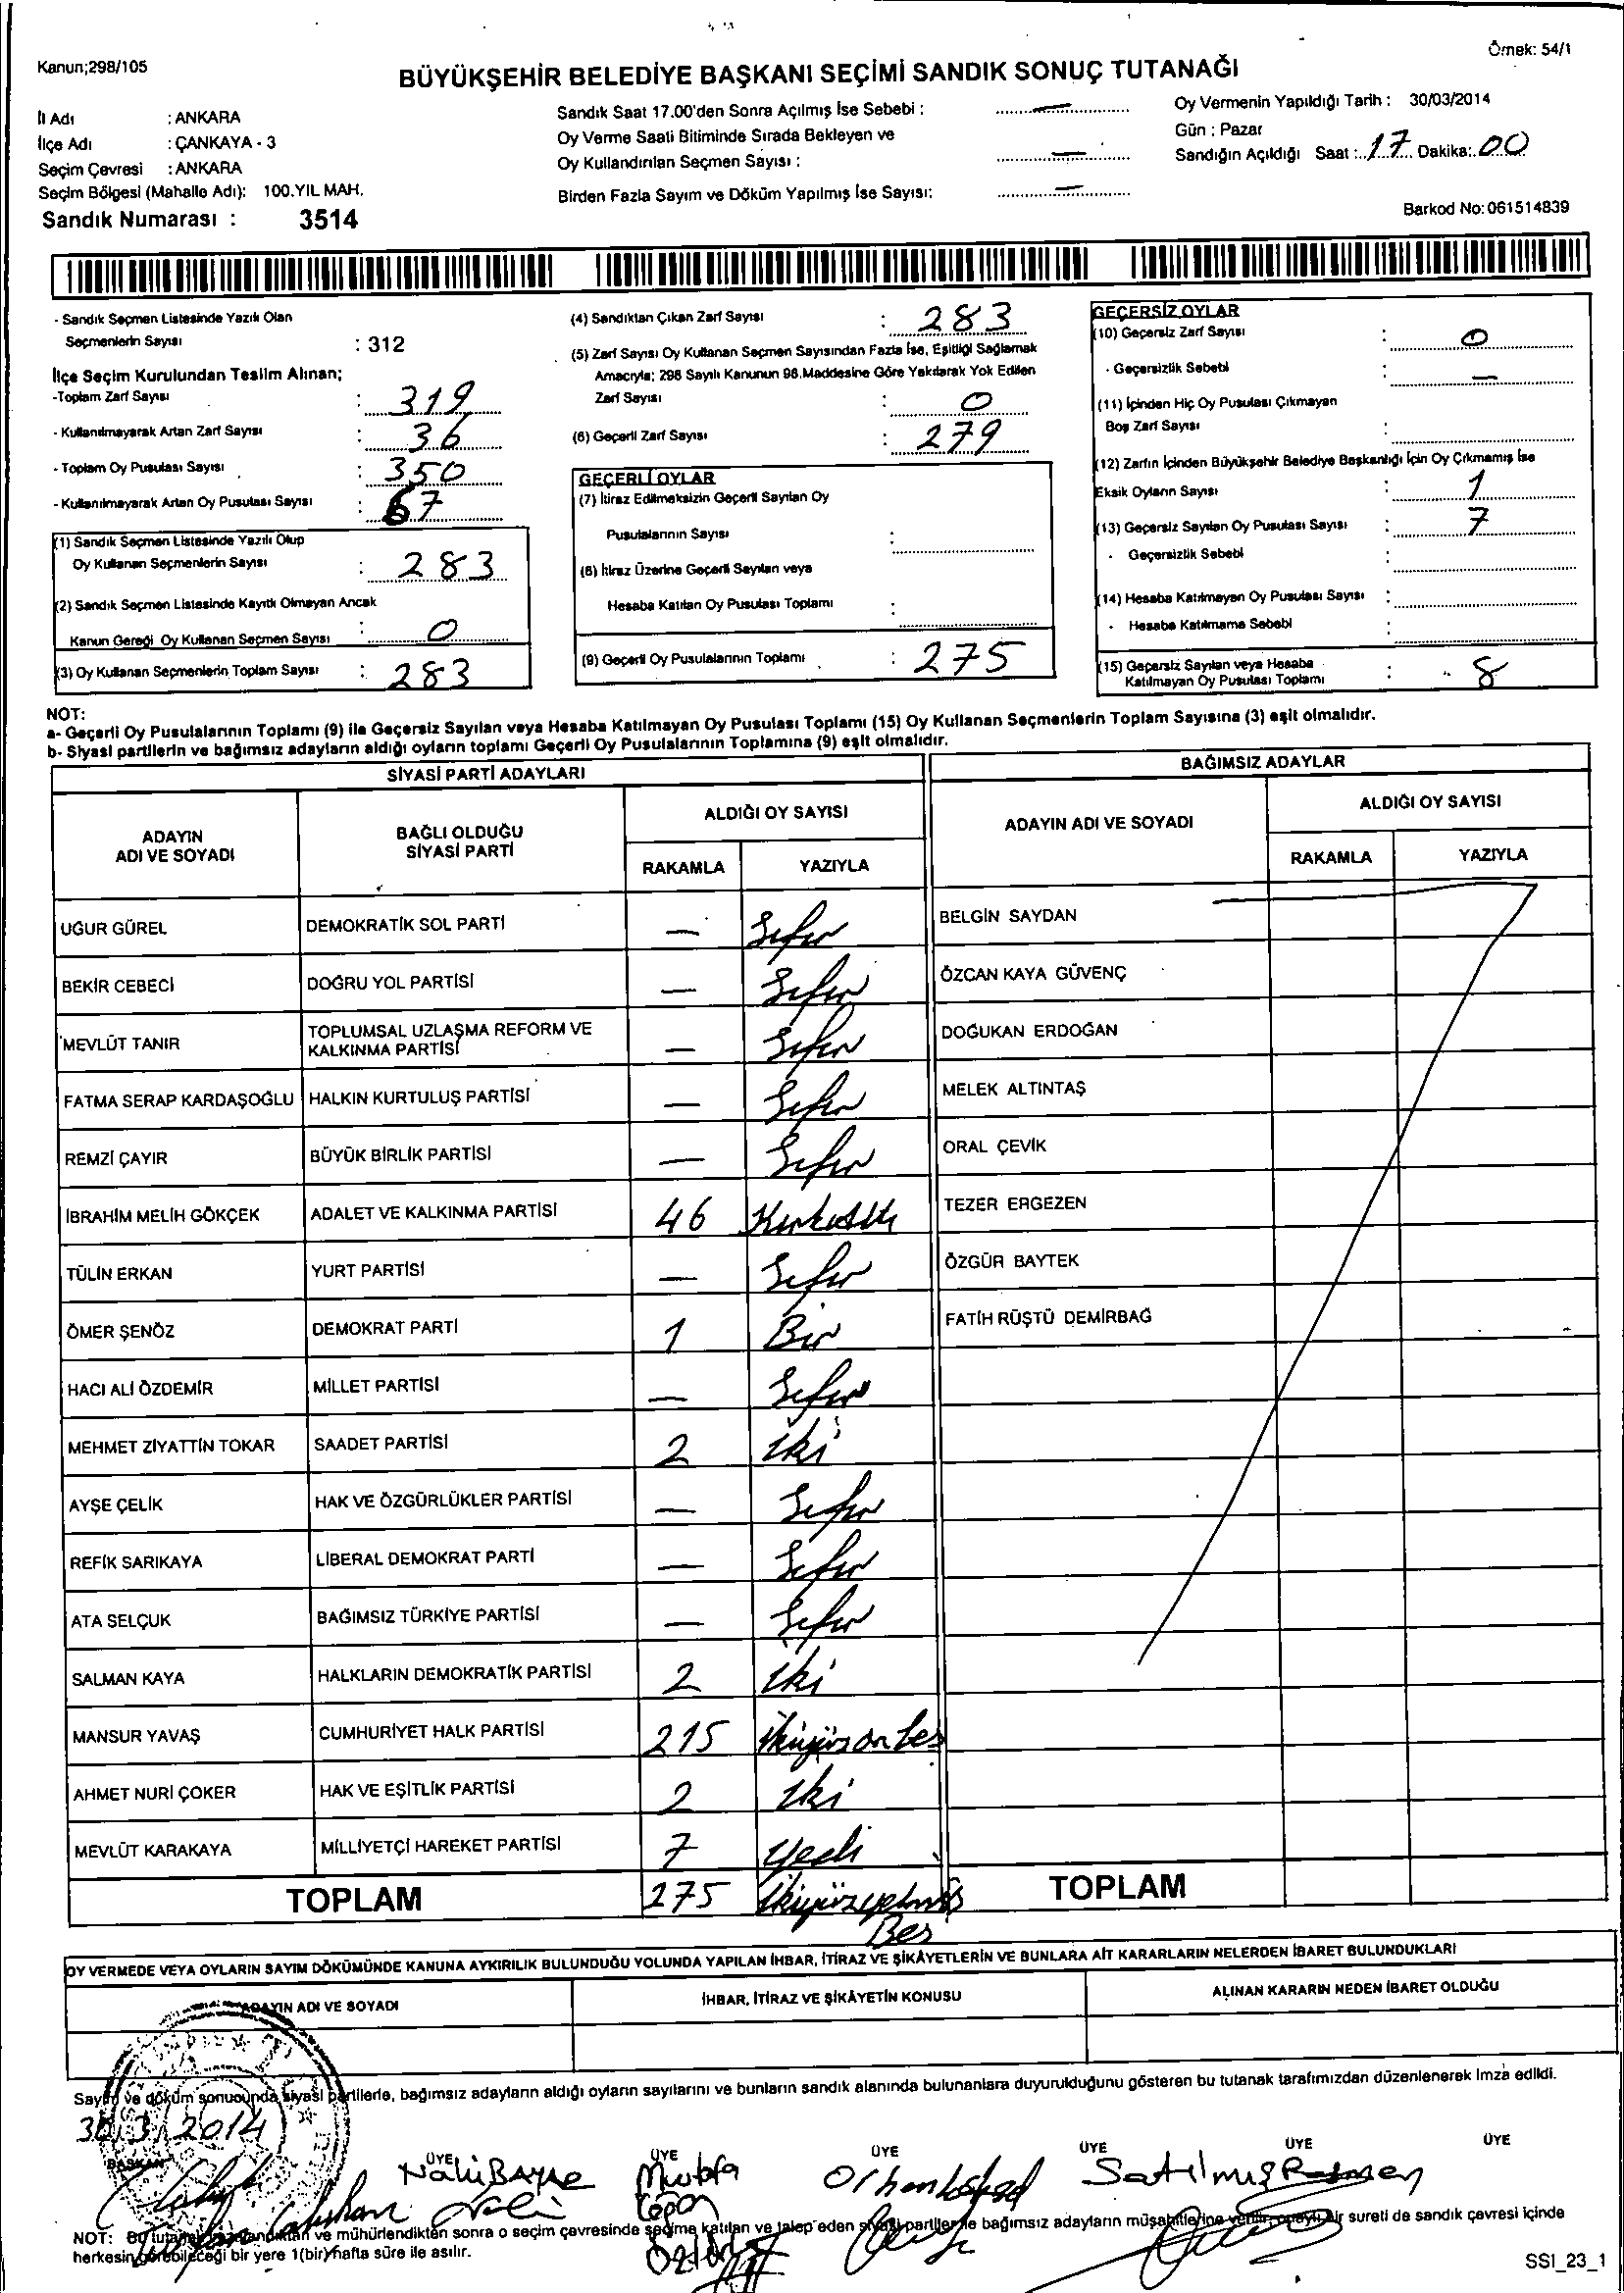 Örnek: 54/1
Kanun;298/105
BÜYÜKŞEHİR BELEDİYE BAŞKANI SEÇİMİ SANDIK SONUÇ TUTANAĞI
İl Adı : ANKARA
İlçe Adı : ÇANKAYA - 3
Seçim Çevresi : ANKARA
Seçim Bölgesi (Mahalle Adı): 100.YIL MAH.
Sandık Numarası : 3514
Sandık Saat 17.00'den Sonra Açılmış İse Sebebi : —
Oy Verme Saati Bitiminde Sırada Bekleyen ve
Oy Kullandırılan Seçmen Sayısı : —
Birden Fazla Sayım ve Döküm Yapılmış İse Sayısı: —
Oy Vermenin Yapıldığı Tarih : 30/03/2014
Gün : Pazar
Sandığın Açıldığı Saat : 17 Dakika: 00
Barkod No: 061514839
- Sandık Seçmen Listesinde Yazılı Olan
Seçmenlerin Sayısı : 312
İlçe Seçim Kurulundan Teslim Alınan;
-Toplam Zarf Sayısı : 319
- Kullanılmayarak Artan Zarf Sayısı : 36
- Toplam Oy Pusulası Sayısı : 350
- Kullanılmayarak Artan Oy Pusulası Sayısı : 67
(1) Sandık Seçmen Listesinde Yazılı Olup
Oy Kullanan Seçmenlerin Sayısı : 283
(2) Sandık Seçmen Listesinde Kayıtlı Olmayan Ancak
Kanun Gereği Oy Kullanan Seçmen Sayısı : 0
(3) Oy Kullanan Seçmenlerin Toplam Sayısı : 283
(4) Sandıktan Çıkan Zarf Sayısı : 283
(5) Zarf Sayısı Oy Kullanan Seçmen Sayısından Fazla İse, Eşitliği Sağlamak
Amacıyla; 298 Sayılı Kanunun 98.Maddesine Göre Yakılarak Yok Edilen
Zarf Sayısı : 0
(6) Geçerli Zarf Sayısı : 279
GEÇERLİ OYLAR
(7) İtiraz Edilmeksizin Geçerli Sayılan Oy
Pusulalarının Sayısı :
(8) İtiraz Üzerine Geçerli Sayılan veya
Hesaba Katılan Oy Pusulası Toplamı :
(9) Geçerli Oy Pusulalarının Toplamı : 275
GEÇERSİZ OYLAR
(10) Geçersiz Zarf Sayısı : 0
- Geçersizlik Sebebi : —
(11) İçinden Hiç Oy Pusulası Çıkmayan
Boş Zarf Sayısı :
(12) Zarfın İçinden Büyükşehir Belediye Başkanlığı İçin Oy Çıkmamış İse
Eksik Oyların Sayısı : 1
(13) Geçersiz Sayılan Oy Pusulası Sayısı : 7
- Geçersizlik Sebebi :
(14) Hesaba Katılmayan Oy Pusulası Sayısı :
- Hesaba Katılmama Sebebi :
(15) Geçersiz Sayılan veya Hesaba
Katılmayan Oy Pusulası Toplamı : 8
NOT:
a- Geçerli Oy Pusulalarının Toplamı (9) ile Geçersiz Sayılan veya Hesaba Katılmayan Oy Pusulası Toplamı (15) Oy Kullanan Seçmenlerin Toplam Sayısına (3) eşit olmalıdır.
b- Siyasi partilerin ve bağımsız adayların aldığı oyların toplamı Geçerli Oy Pusulalarının Toplamına (9) eşit olmalıdır.
SİYASİ PARTİ ADAYLARI
ADAYIN ADI VE SOYADI BAĞLI OLDUĞU SİYASİ PARTİ ALDIĞI OY SAYISI
RAKAMLA YAZIYLA
UĞUR GÜREL DEMOKRATİK SOL PARTİ — Sıfır
BEKİR CEBECİ DOĞRU YOL PARTİSİ — Sıfır
MEVLÜT TANIR TOPLUMSAL UZLAŞMA REFORM VE KALKINMA PARTİSİ — Sıfır
FATMA SERAP KARDAŞOĞLU HALKIN KURTULUŞ PARTİSİ — Sıfır
REMZİ ÇAYIR BÜYÜK BİRLİK PARTİSİ — Sıfır
İBRAHİM MELİH GÖKÇEK ADALET VE KALKINMA PARTİSİ 46 Kırkaltı
TÜLİN ERKAN YURT PARTİSİ — Sıfır
ÖMER ŞENÖZ DEMOKRAT PARTİ 1 Bir
HACI ALİ ÖZDEMİR MİLLET PARTİSİ — Sıfır
MEHMET ZİYATTİN TOKAR SAADET PARTİSİ 2 iki
AYŞE ÇELİK HAK VE ÖZGÜRLÜKLER PARTİSİ — Sıfır
REFİK SARIKAYA LİBERAL DEMOKRAT PARTİ — Sıfır
ATA SELÇUK BAĞIMSIZ TÜRKİYE PARTİSİ — Sıfır
SALMAN KAYA HALKLARIN DEMOKRATİK PARTİSİ 2 iki
MANSUR YAVAŞ CUMHURİYET HALK PARTİSİ 215 ikiyüzonbeş
AHMET NURİ ÇOKER HAK VE EŞİTLİK PARTİSİ 2 iki
MEVLÜT KARAKAYA MİLLİYETÇİ HAREKET PARTİSİ 7 yedi
TOPLAM 275 ikiyüzyetmiş Beş
BAĞIMSIZ ADAYLAR
ADAYIN ADI VE SOYADI ALDIĞI OY SAYISI
RAKAMLA YAZIYLA
BELGİN SAYDAN
ÖZCAN KAYA GÜVENÇ
DOĞUKAN ERDOĞAN
MELEK ALTINTAŞ
ORAL ÇEVİK
TEZER ERGEZEN
ÖZGÜR BAYTEK
FATİH RÜŞTÜ DEMİRBAĞ
TOPLAM
OY VERMEDE VEYA OYLARIN SAYIM DÖKÜMÜNDE KANUNA AYKIRILIK BULUNDUĞU YOLUNDA YAPILAN İHBAR, İTİRAZ VE ŞİKÂYETLERİN VE BUNLARA AİT KARARLARIN NELERDEN İBARET BULUNDUKLARI
ADAYIN ADI VE SOYADI İHBAR, İTİRAZ VE ŞİKÂYETİN KONUSU ALINAN KARARIN NEDEN İBARET OLDUĞU
Sayım ve döküm sonucunda siyasi partilerle, bağımsız adayların aldığı oyların sayılarını ve bunların sandık alanında bulunanlara duyurulduğunu gösteren bu tutanak tarafımızdan düzenlenerek imza edildi.
30/3/2014
BAŞKAN ÜYE ÜYE ÜYE ÜYE ÜYE ÜYE
Mustafa Orhan Satılmış
NOT: Bu tutanak ve mühürlendikten sonra o seçim çevresinde seçime katılan ve talep eden siyasi partiler ile bağımsız adayların müşahitlerine bir sureti de sandık çevresi içinde
herkesin görebileceği bir yere 1(bir) hafta süre ile asılır.
SSI_23_1